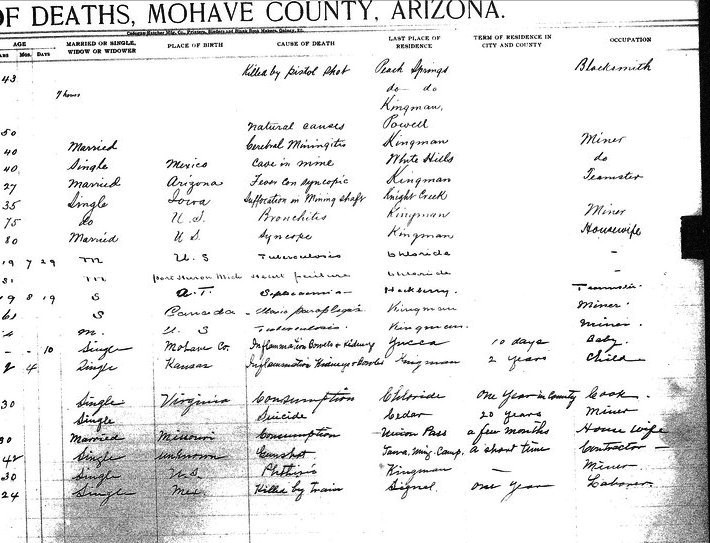 OF DEATHS, MOHAVE COUNTY, ARIZONA.
AGE MARRIED OR SINGLE, WIDOW OR WIDOWER PLACE OF BIRTH CAUSE OF DEATH LAST PLACE OF RESIDENCE TERM OF RESIDENCE IN CITY AND COUNTY OCCUPATION
Mos. Days
43 Killed by pistol shot Peach Springs Blacksmith
7 hours do do
Kingman,
50 Natural causes Powell
40 Married Cerebral Miningitis Kingman Miner
40 Single Mexico Cave in mine White Hills do
27 Married Arizona Fever Con syncopic Kingman Teamster
35 Single Iowa Suffocation in Mining shaft Knight Creek
75 do U.S. Bronchitis Kingman Miner
80 Married U.S. Syncope Kingman Housewife
19 7 29 M U.S Tuberculosis Chloride -
31 M Port Huron Mich Heart failure Chloride -
19 8 19 S A.T. Hackberry.
S Canada paraplegia Kingman Miner.
M. U.S Tuberculosis. Kingman. Miner.
- - 10 Single Mohave Co. Inflammation Bowels & Kidney Yucca 10 days Baby
2 4 Single Kansas Inflammation Kidneys & Bowels Kingman 2 years Child
30 Single Virginia Consumption Chloride One Year in County Cook
Single Suicide Cedar 20 years Miner
30 Married Missouri Consumption Union Pass a few months House wife
48 Single unknown Gunshot Mng. Camp. a short time Contractor -
30 Single U.S. Phthisis Kingman - Miner
24 Single Mex Killed by train Signal. one Year Laborer